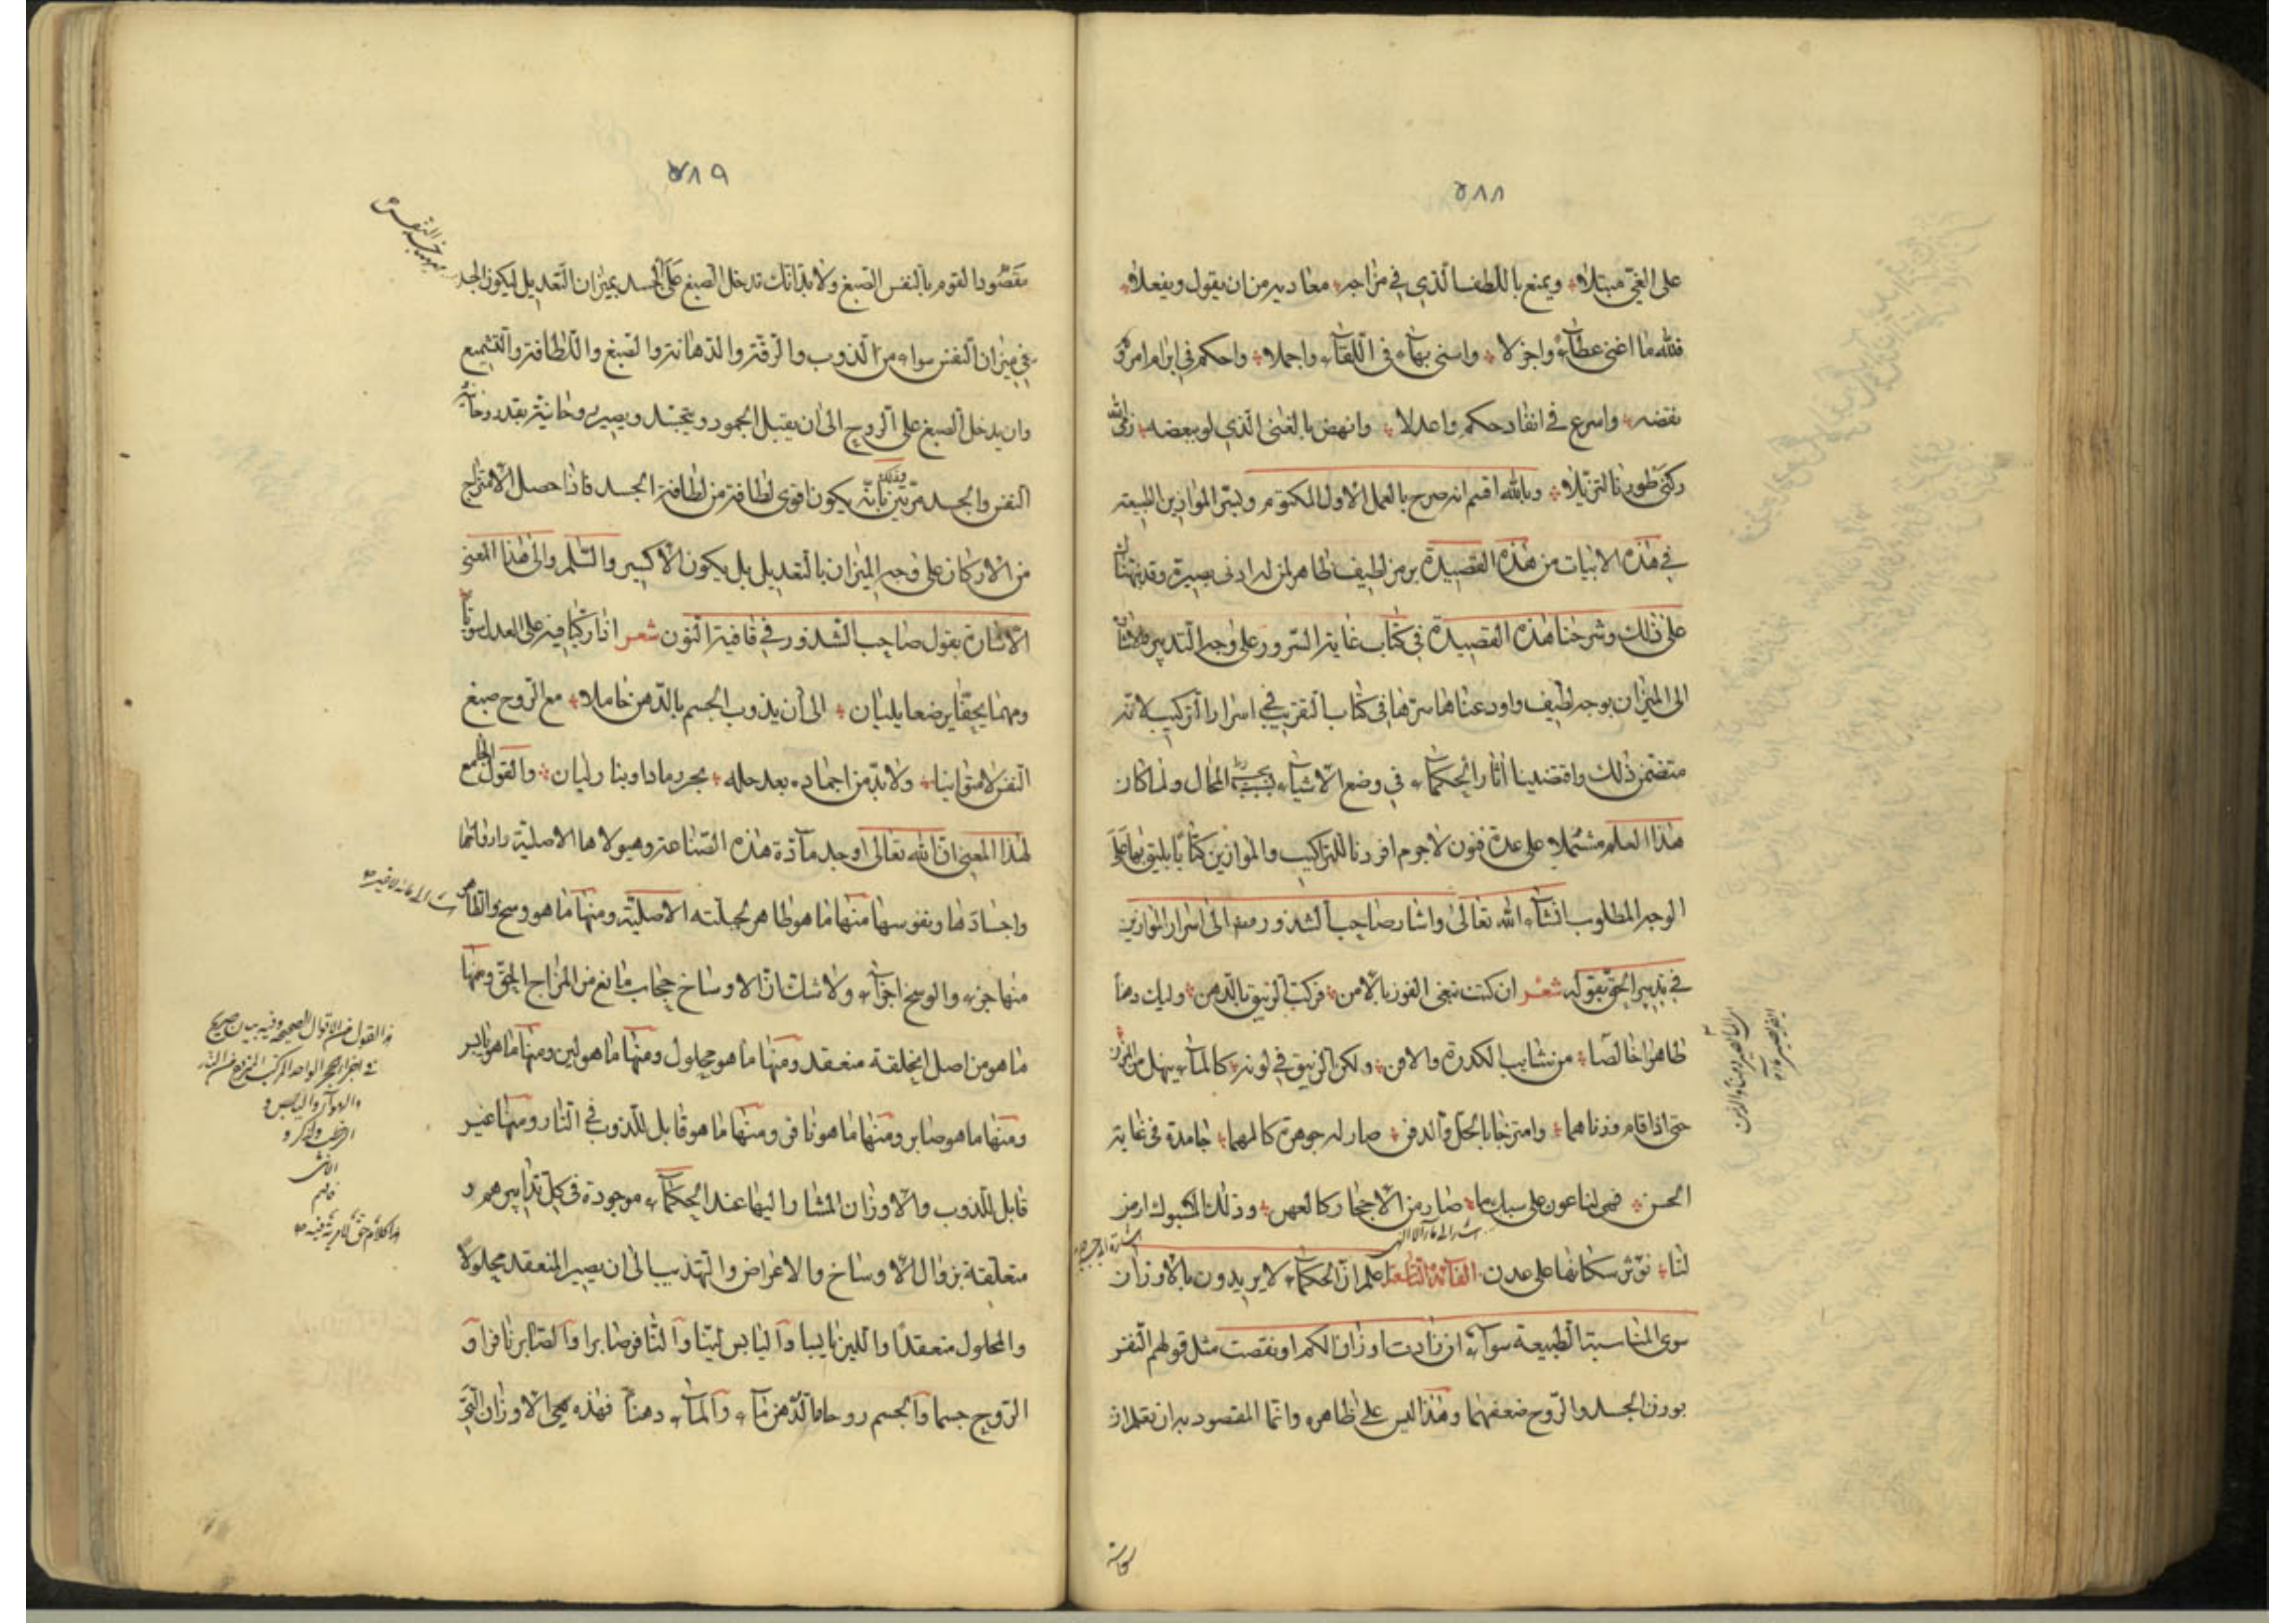 ٥٨٨
على الغنى مبتلا ويمنع باللطف الذي في مزاجه معاديه من ان يقول ويفعلا
فلله ما اغنى عطاء واجزلا واسنى بهاء في اللقاء واجملا واحكم في ابرام امر و
نقضه واسرع في انفاد حكم واعدلا وانهض بالغنى الذي لو ببعضه
ركنى طورنا لتزيلا وبالله اقسم انه صرح بالعمل الاول المكتوم وليس الموازين الطبيعية
في هذه الابيات من هذه القصيدة برمز لطيف ظاهر لمن له ادنى بصيرة وقد نبهناك
على ذلك وشرحنا هذه القصيدة في كتاب غاية السرور على وجه التدبير
الى الميزان بوجه لطيف واودعناها سرها في كتاب التقريب في اسرار التركيب لانه
متضمن ذلك واقتضينا اثار الحكماء في وضع الاشياء بحسب المحال ولما كان
هذا العلم مشتملا على عدة فنون لا جرم افردنا للتراكيب والموازين كتابا يليق بها على
الوجه المطلوب انشاء الله تعالى واشار صاحب الشذور الى اسرار الموازين
في تدبير الحق بقوله شعر ان كنت تبغى الفوز بالامن فركب الزيبق بالدهن وليك دهنا
طاهرا خالصا من شايب الكدرة والافن ولكن الزيبق في لونه كالماء ينهل من المزن
حتى اذا قام وزناهما وامتزجا بالحل والدفن صار له جوهرة كالمها جامدة في غاية
الحسن فهى لنا عون على سبك ما صار من الاحجار كالعهن وذلك المسبوك ارض
لنا نوثر سكانها على عدن الفائدة التاسعة اعلم ان الحكماء لا يريدون بالاوزان
سوى المناسبة الطبيعة سواء ان زادت اوزان الكم او نقصت مثل قولهم النفس
بوزن الجسد والروح ضعفهما وهذا ليس على ظاهره وانما المقصود به ان تعلم ان
٥٨٩
مقصود القوم بالنفس الصبغ ولا بد انك تدخل الصبغ على الجسد بميزان التعديل ليكون الجسد
في ميزان النفس سواء من الذوب والرقة والدهانة والصبغ واللطافة والتشميع
وان يدخل الصبغ على الروح الى ان يقبل الجمود ويتجسد ويصير روحانيته بقدر روحانية
النفس والجسد مرتين بانه يكون اقوى لطافة من لطافة الجسد فاذا حصل الامتزاج
من الاركان على وجه الميزان بالتعديل بل يكون الاكسير والسلم والى هذا المعنى
الاشارة بقول صاحب الشذور في قافية النون شعر اذا ركبا فيه على العدل سويا
ومهما يجفا يرضعا بلبان الى ان يذوب الجسم بالدهن حاملا مع الروح صبغ
النفس لا متوانيا ولا بد من اجماده بعد حله بحر رماد او بنار ليان والقول الجامع
لهذا المعنى ان الله تعالى اوجد مادة هذه الصناعة وهيولاها الاصلية واركانها
واجسادها ونفوسها منها ما هو طاهر لجبلته الاصلية ومنها ما هو وسخ والطاهر
منها جزء والوسخ اجزاء ولا شك ان الاوساخ حجاب مانع من المزاج الحق ومنها
ما هو من اصل الخلقة منعقد ومنها ما هو محلول ومنها ما هو لين ومنها ما هو يابس
ومنها ما هو صابر ومنها ما هو نافر ومنها ما هو قابل للذوب في النار ومنها غير
قابل للذوب والاوزان المشار اليها عند الحكماء موجودة في كل تدابيرهم و
متعلقة بزوال الاوساخ والاعراض والتهذيب الى ان يصير المنعقد محلولا
والمحلول منعقدا واللين يابسا واليابس لينا والنافر صابرا والصابر نافرا و
الروح جسما والجسم روحا والدهن ماء والماء دهنا فهذه هي الاوزان التي